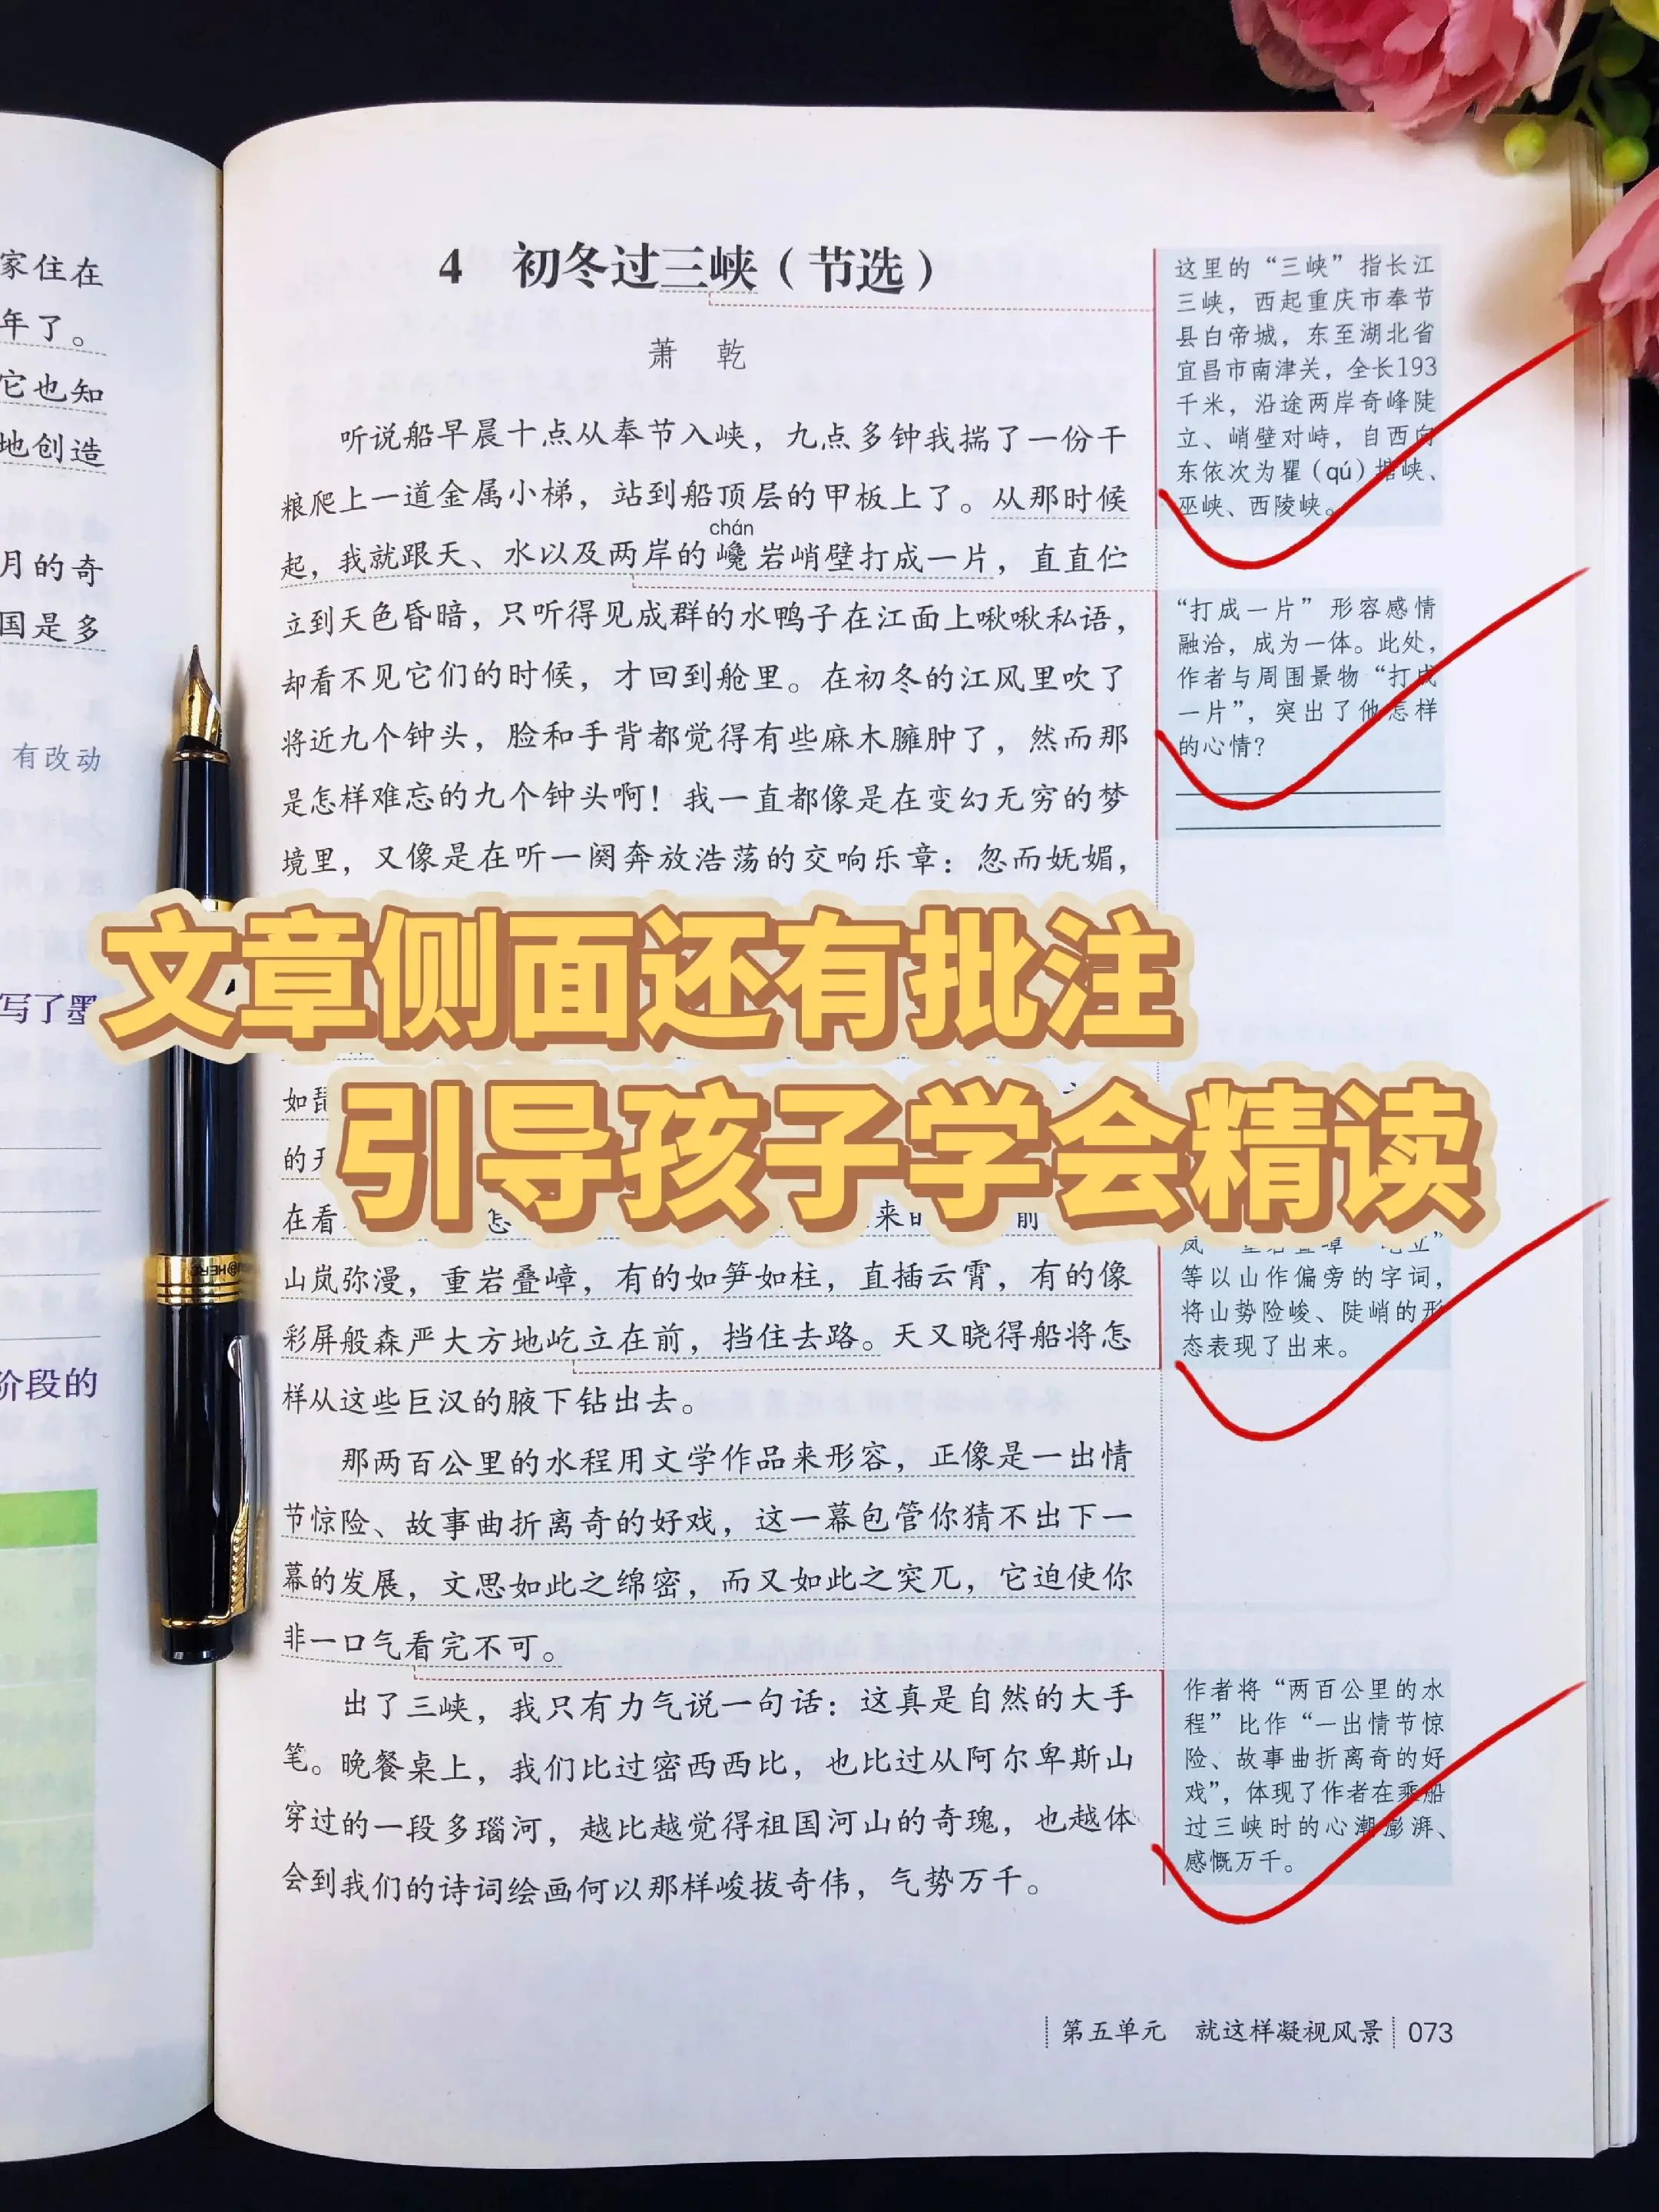 家住在
年了。
它也知
地创造
月的奇
国是多
有改动
写了墨
阶段的
4 初冬过三峡（节选）
萧 乾
听说船早晨十点从奉节入峡，九点多钟我揣了一份干
粮爬上一道金属小梯，站到船顶层的甲板上了。从那时候
chán
起，我就跟天、水以及两岸的巉岩峭壁打成一片，直直伫
立到天色昏暗，只听得见成群的水鸭子在江面上啾啾私语，
却看不见它们的时候，才回到舱里。在初冬的江风里吹了
将近九个钟头，脸和手背都觉得有些麻木臃肿了，然而那
是怎样难忘的九个钟头啊！我一直都像是在变幻无穷的梦
境里，又像是在听一阕奔放浩荡的交响乐章：忽而妩媚，
文章侧面还有批注
引导孩子学会精读
如琵
的天
在看 怎 来的 前
山岚弥漫，重岩叠嶂，有的如笋如柱，直插云霄，有的像
彩屏般森严大方地屹立在前，挡住去路。天又晓得船将怎
样从这些巨汉的腋下钻出去。
那两百公里的水程用文学作品来形容，正像是一出情
节惊险、故事曲折离奇的好戏，这一幕包管你猜不出下一
幕的发展，文思如此之绵密，而又如此之突兀，它迫使你
非一口气看完不可。
出了三峡，我只有力气说一句话：这真是自然的大手
笔。晚餐桌上，我们比过密西西比，也比过从阿尔卑斯山
穿过的一段多瑙河，越比越觉得祖国河山的奇瑰，也越体
会到我们的诗词绘画何以那样峻拔奇伟，气势万千。
这里的“三峡”指长江
三峡，西起重庆市奉节
县白帝城，东至湖北省
宜昌市南津关，全长193
千米，沿途两岸奇峰陡
立、峭壁对峙，自西向
东依次为瞿（qú）塘峡、
巫峡、西陵峡。
“打成一片”形容感情
融洽，成为一体。此处，
作者与周围景物“打成
一片”，突出了他怎样
的心情？
等以山作偏旁的字词，
将山势险峻、陡峭的形
态表现了出来。
作者将“两百公里的水
程”比作“一出情节惊
险、故事曲折离奇的好
戏”，体现了作者在乘船
过三峡时的心潮澎湃、
感慨万千。
第五单元 就这样凝视风景 073